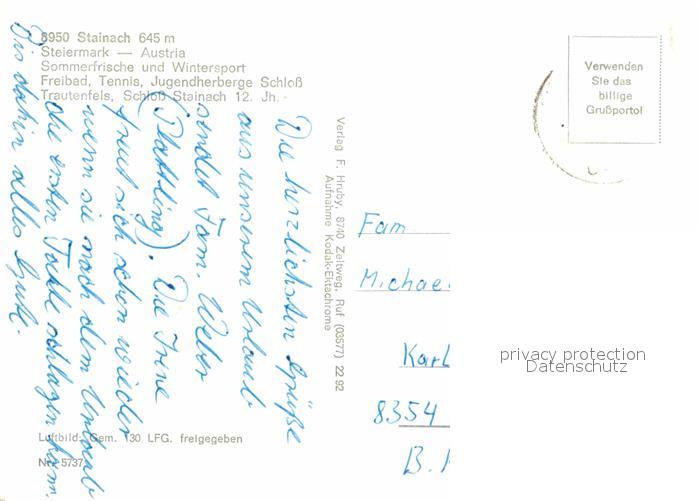 8950 Stainach 645 m
Steiermark — Austria
Sommerfrische und Wintersport
Freibad, Tennis, Jugendherberge Schloß
Trautenfels, Schloß Stainach 12. Jh.
Die herzlichsten Grüße
aus unserem Urlaub
sendet Fam. Weber
(Plattling). Die Irene
freut sich schon wieder
wenn sie nach dem Urlaub
die ersten Töchle schlagen kann.
Bis dahin alles Gute.
Luftbild: Gem. 130 LFG. freigegeben
Nr. 5737
Verlag F. Hruby, 8740 Zeltweg, Ruf (03577) 22 92
Aufnahme Kodak-Ektachrome
Verwenden
Sie das
billige
Grußporto!
Fam
Michae
Karl
8354
B.
privacy protection
Datenschutz